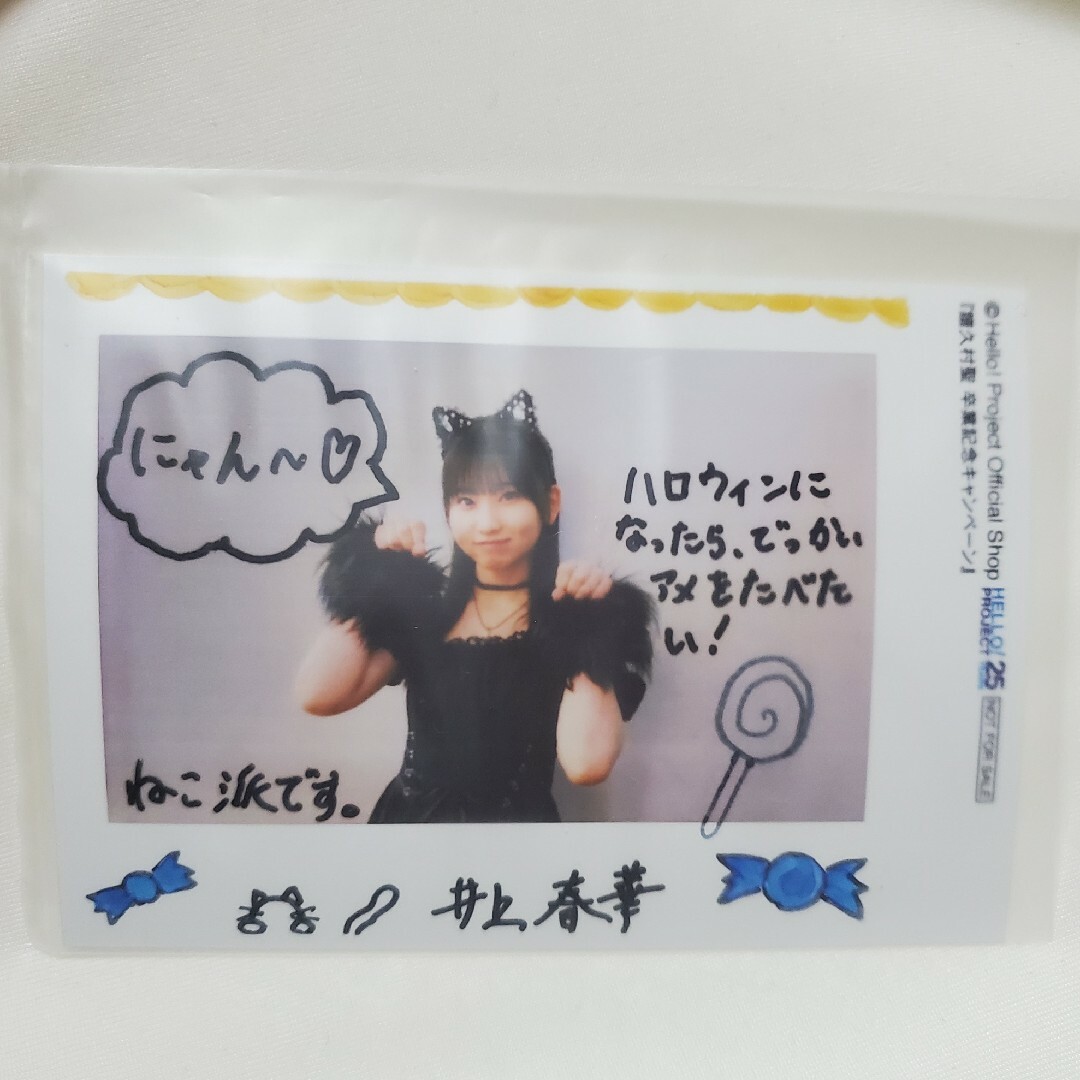 にゃん〜♡
ハロウィンに
なったら、でっかい
アメをたべた
い!
ねこ派です。
井上春華
©Hello! Project Official Shop HELLO! PROJECT 25 NOT FOR SALE
『譜久村聖 卒業記念キャンペーン』